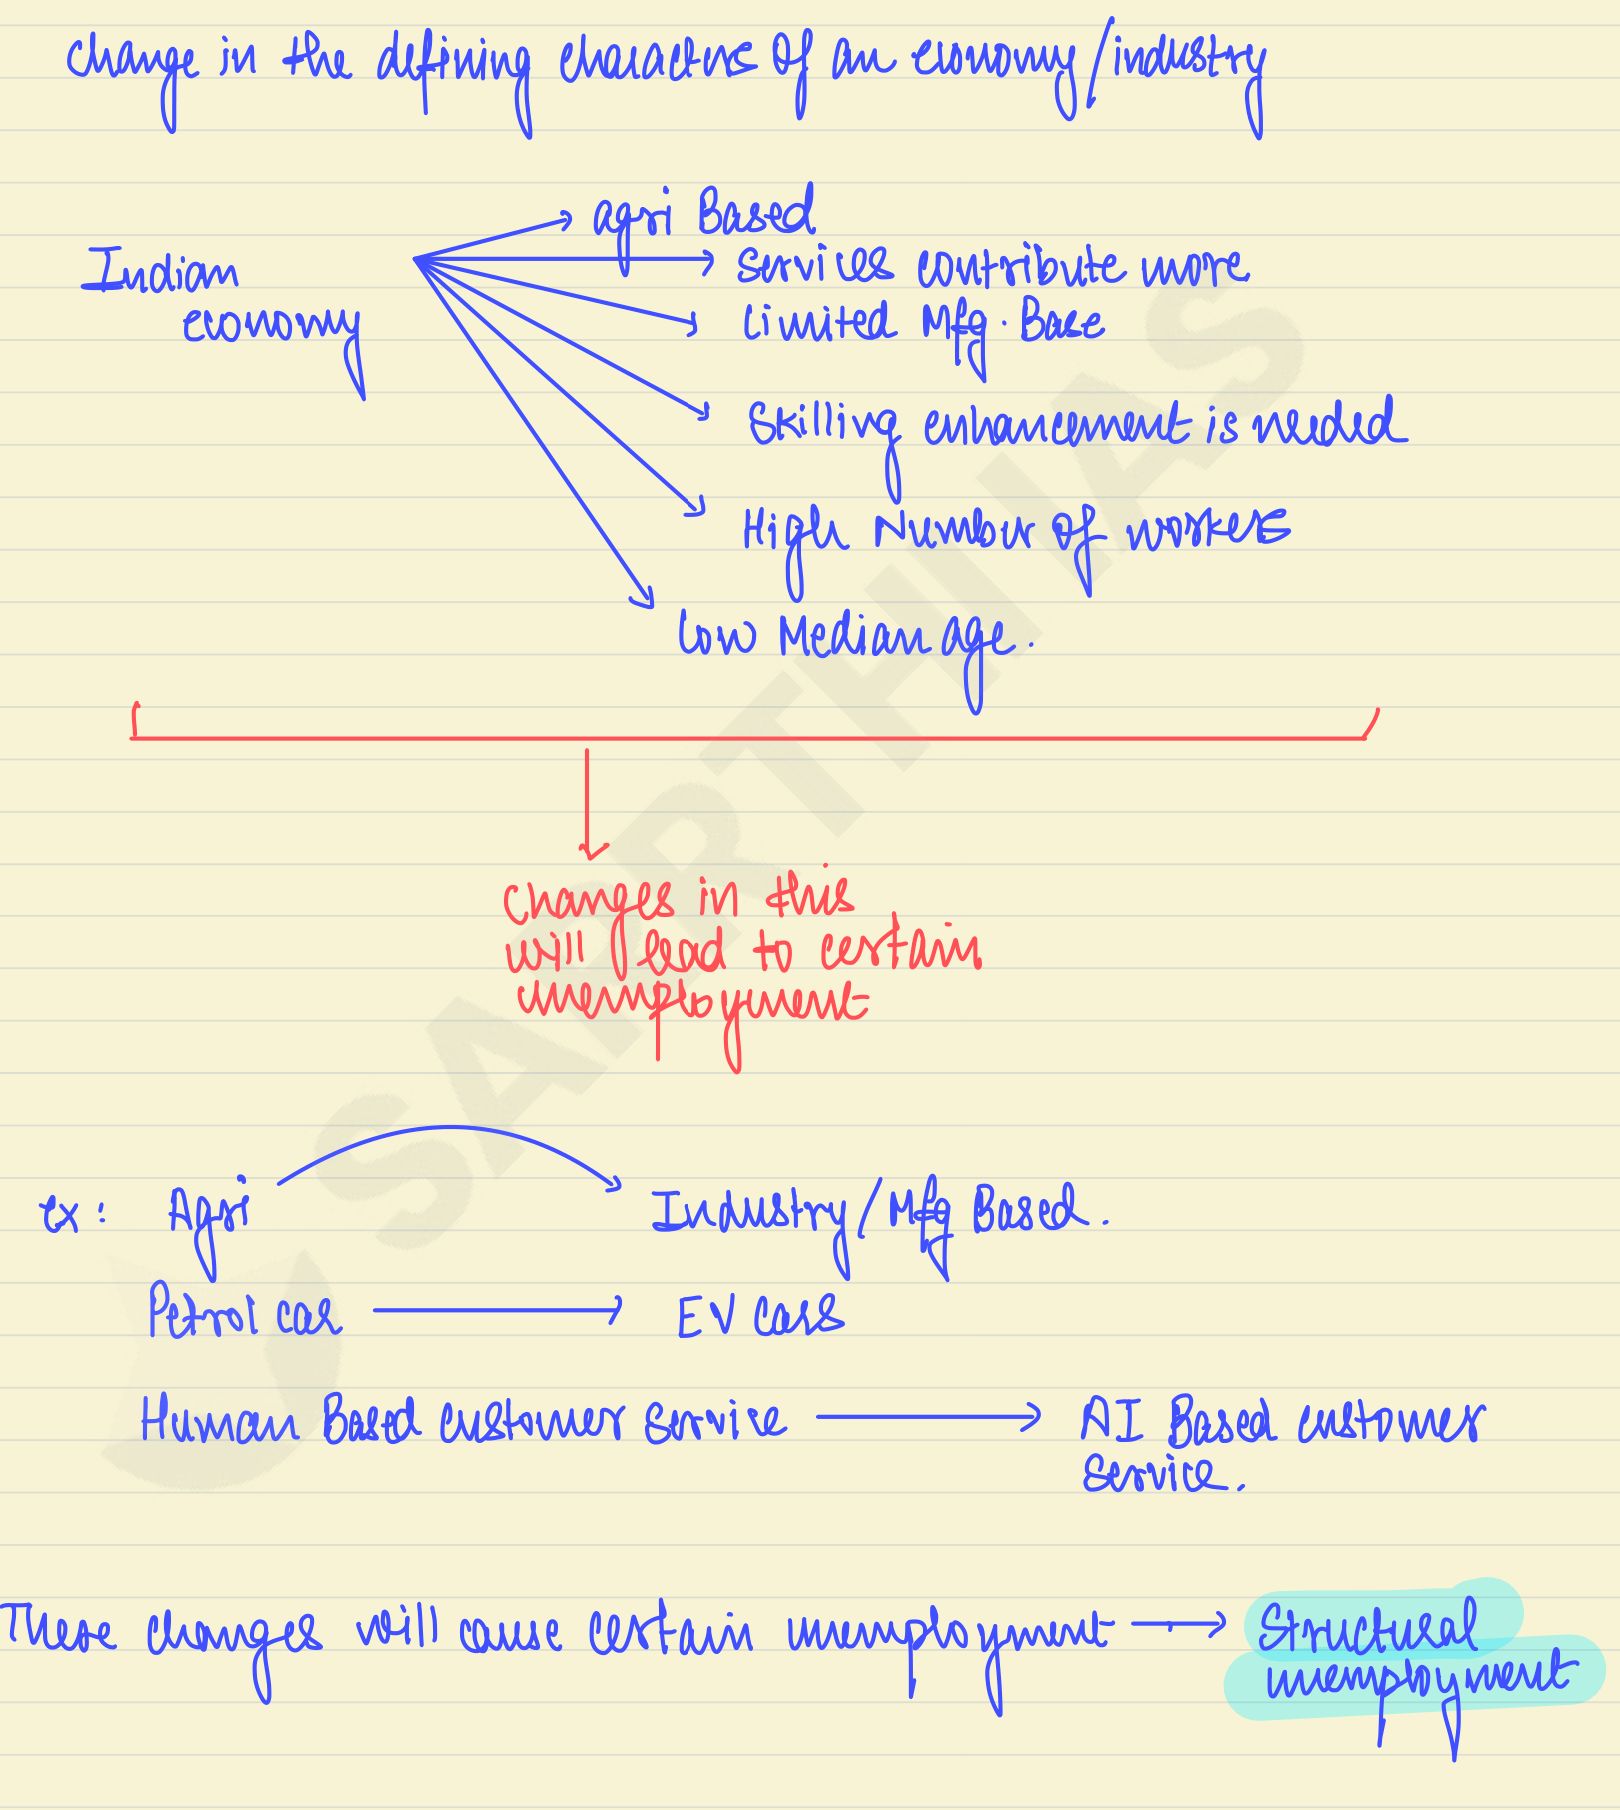 Change in the defining characters of an economy/industry
agri Based
Indian
economy
Services contribute more
Limited Mfg. Base
Skilling enhancement is needed
High Number of workers
Low Median age.
Changes in this
will lead to certain
unemployment
ex: Agri
Industry/Mfg Based.
Petrol car
EV cars
Human Based customer service
AI Based customer
Service.
These changes will cause certain unemployment
Structural
unemployment
SARTHI IAS